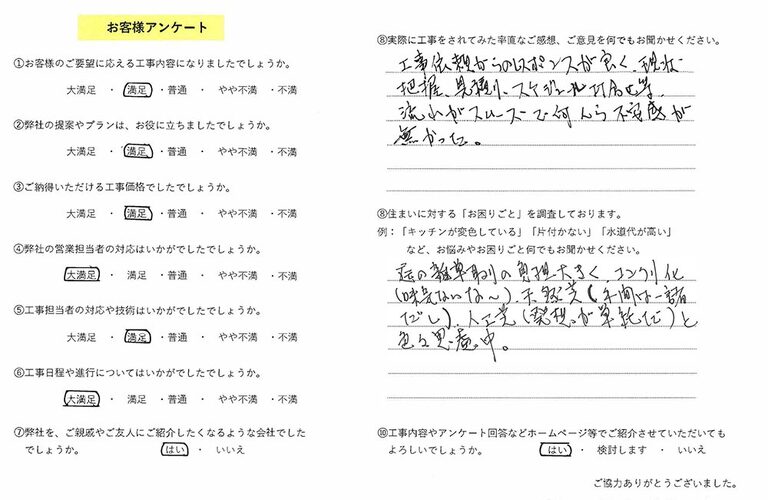 お客様アンケート
①お客様のご要望に応える工事内容になりましたでしょうか。
大満足 ・ 満足 ・普通 ・ やや不満 ・不満
②弊社の提案やプランは、お役に立ちましたでしょうか。
大満足 ・ 満足 ・普通 ・ やや不満 ・不満
③ご納得いただける工事価格でしたでしょうか。
大満足 ・ 満足 ・普通 ・ やや不満 ・不満
④弊社の営業担当者の対応はいかがでしたでしょうか。
大満足 ・ 満足 ・普通 ・ やや不満 ・不満
⑤工事担当者の対応や技術はいかがでしたでしょうか。
大満足 ・ 満足 ・普通 ・ やや不満 ・不満
⑥工事日程や進行についてはいかがでしたでしょうか。
大満足 ・ 満足 ・普通 ・ やや不満 ・不満
⑦弊社を、ご親戚やご友人にご紹介したくなるような会社でした
でしょうか。 はい ・ いいえ
⑧実際に工事をされてみた率直なご感想、ご意見を何でもお聞かせください。
工事依頼からのレスポンスが良く、現状
把握、見積り、スケジュール打合せ等
流れがスムーズで何んら不安感が
無かった。
⑧住まいに対する「お困りごと」を調査しております。
例：「キッチンが変色している」「片付かない」「水道代が高い」
など、お悩みやお困りごと何でもお聞かせください。
庭の雑草取りの負担大きく、コンクリ化
(味気ないな〜)、天然芝(手間は一諸
だし)、人工芝(発想が単純だ)と
色々思慮中。
⑩工事内容やアンケート回答などホームページ等でご紹介させていただいても
よろしいでしょうか。 はい ・ 検討します ・ いいえ
ご協力ありがとうございました。